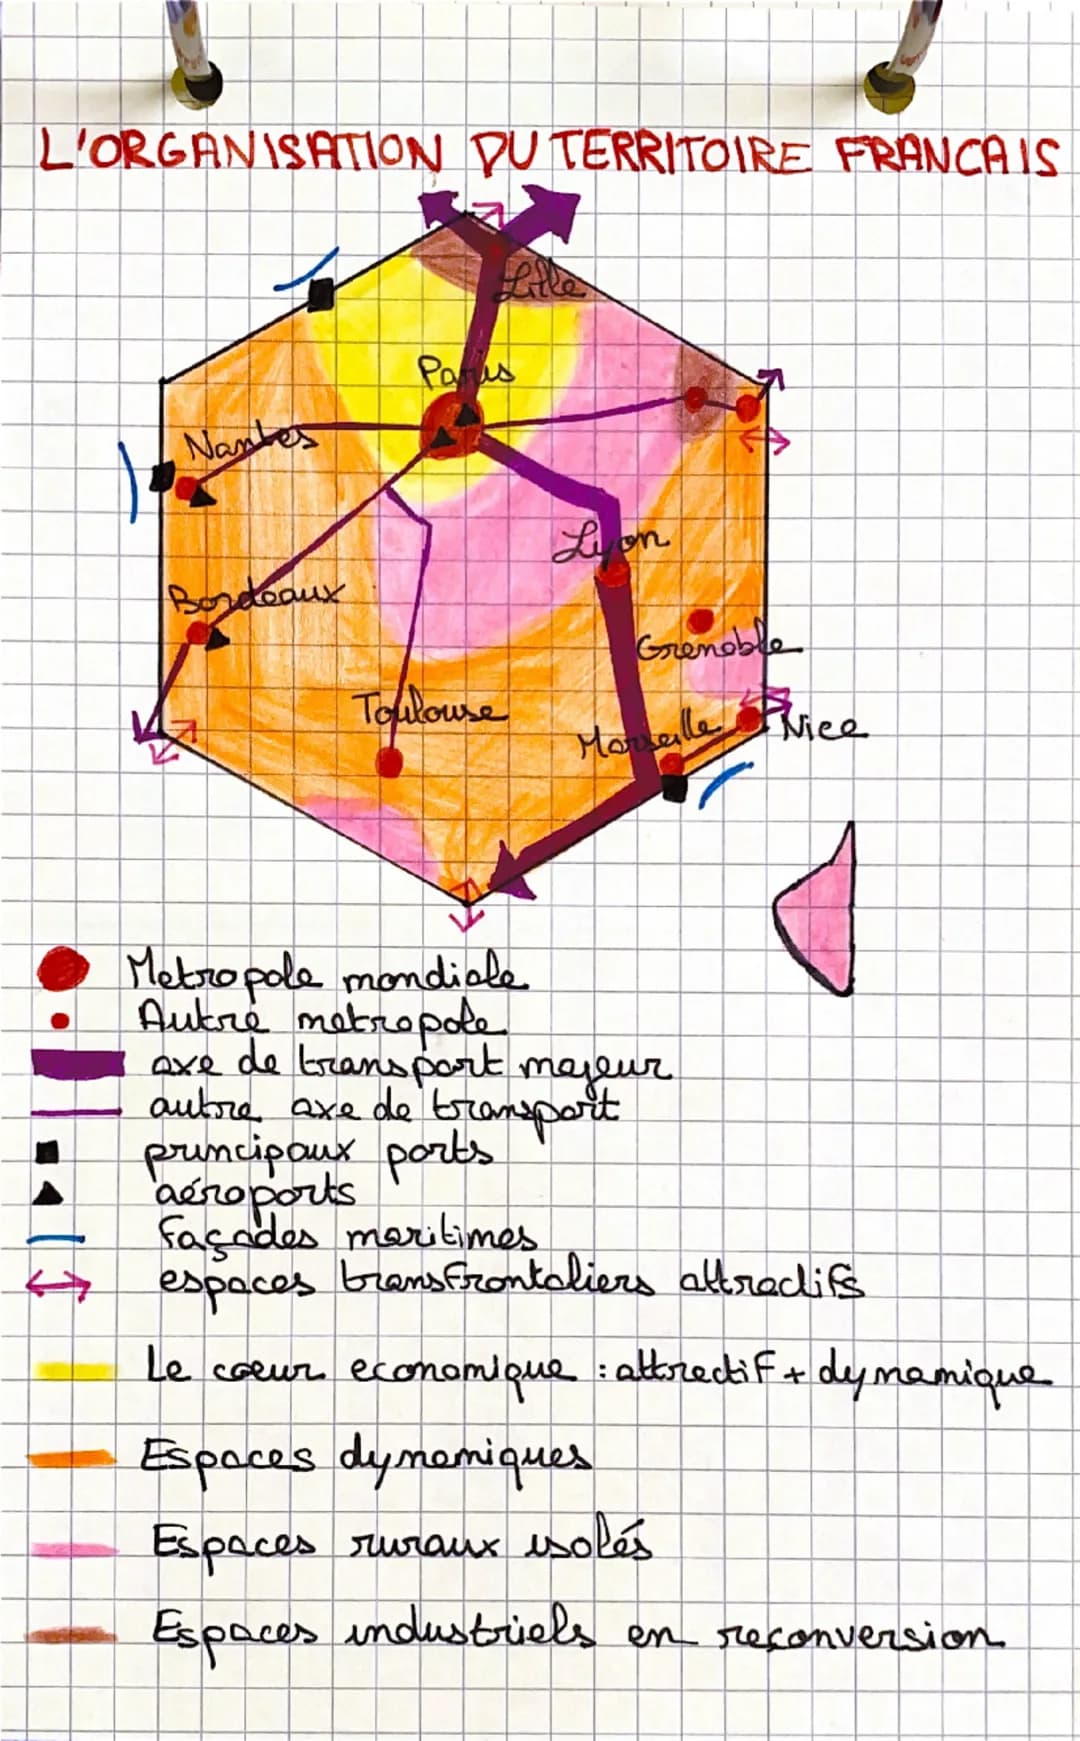 L'ORGANISATION DU TERRITOIRE FRANCAIS
Lille
Paris
Nantes
Lyon
Bordeaux
Grenoble
Toulouse
Marseille
Nice
Metropole mondiale
Autre metropole
axe de transport majeur
autre axe de transport
principaux ports
aéroports
façades maritimes
espaces transfrontaliers attractifs
Le coeur economique : attractif + dynamique
Espaces dynamiques
Espaces ruraux isolés
Espaces industriels en reconversion